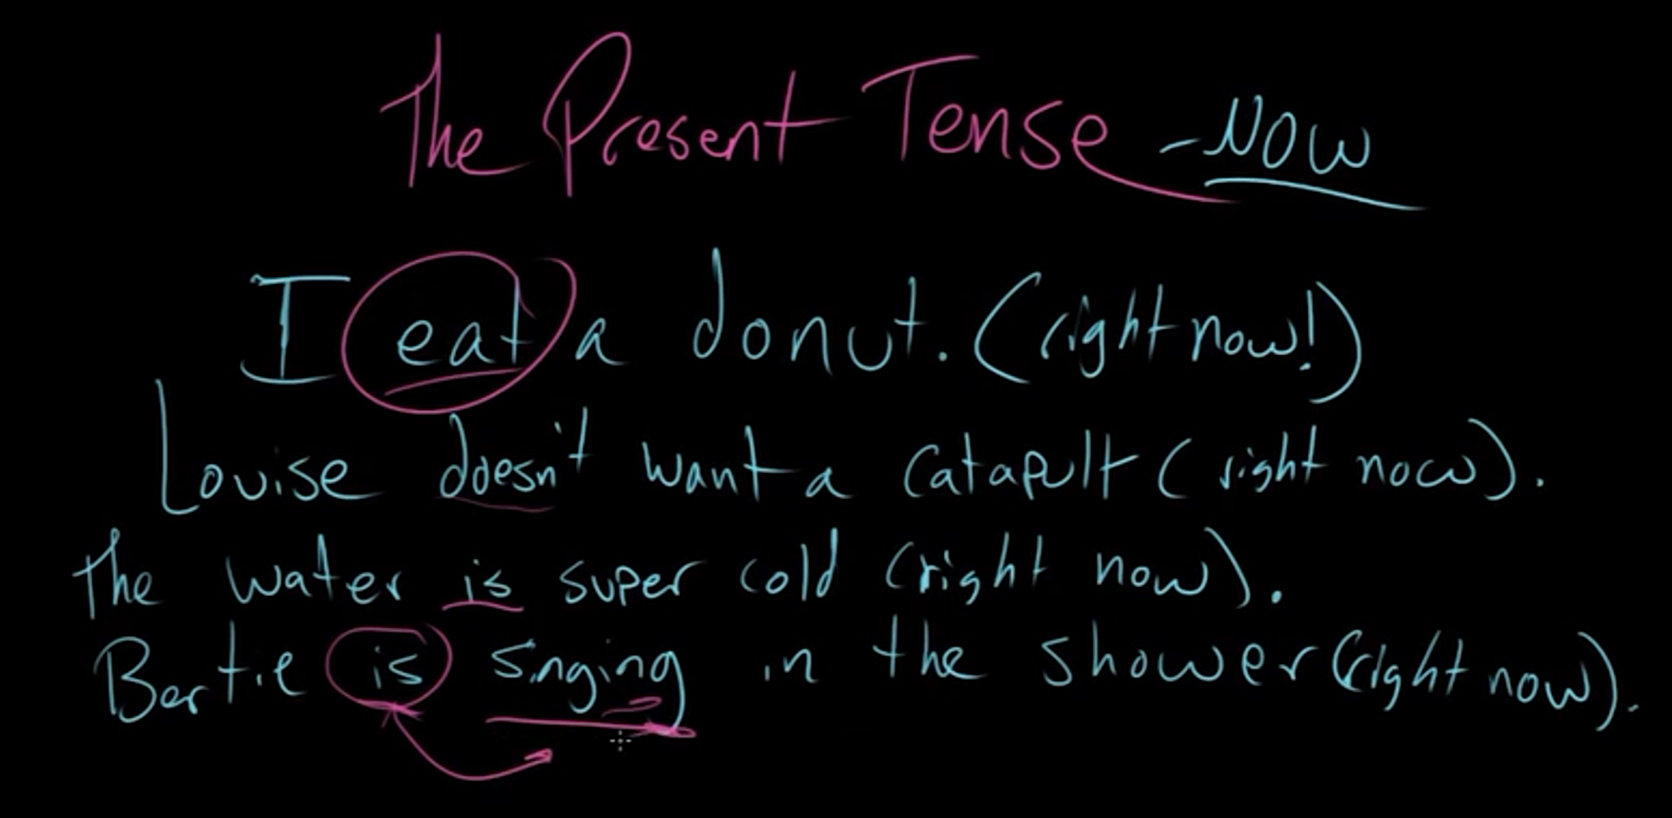 The Present Tense - NOW
I eat a donut. (right now!)
Louise doesn't want a catapult (right now).
The water is super cold (right now).
Bertie is singing in the shower (right now).